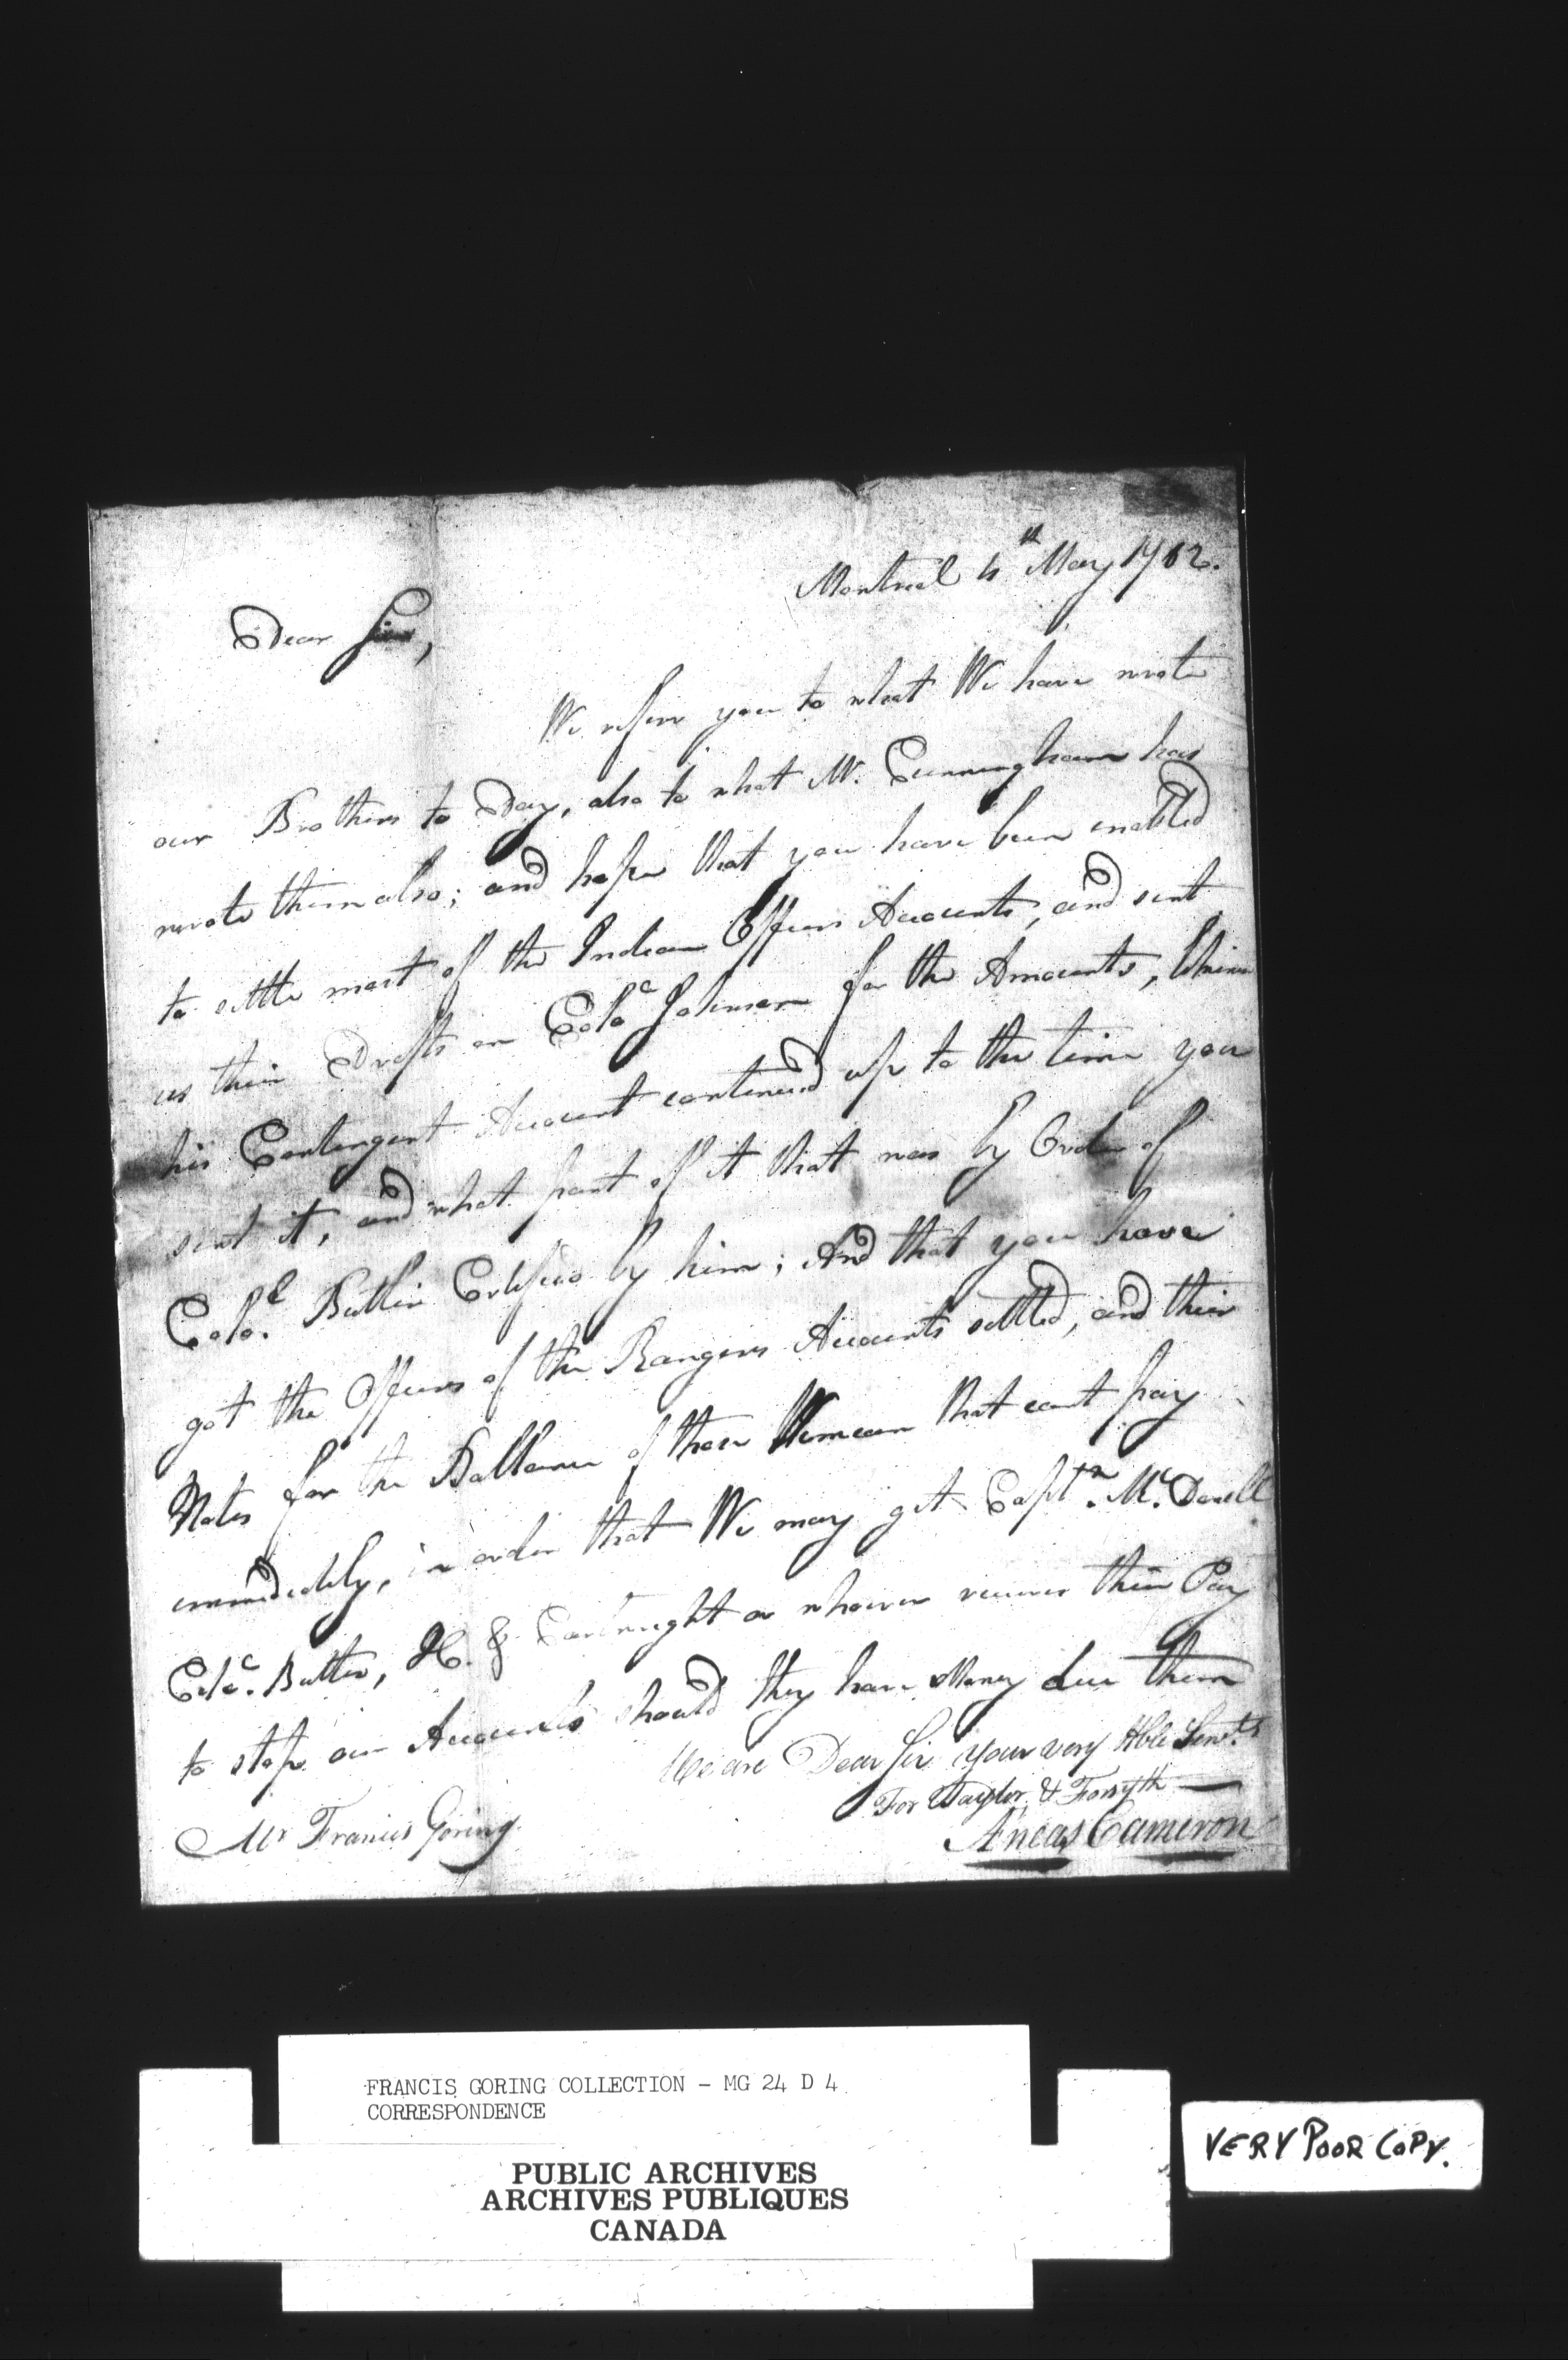 Montreal 4th May 1782.
Dear Sir,
We refer you to what We have wrote
our Brothers to Day, also to what Mr. Cunningham has
wrote them also; and hope that you have been enabled
to settle most of the Indian Officers Accounts, and sent
us their Drafts on Colo Johnson for the Amounts, likewise
his Contengent Account continued up to the time you
sent it, and what part of it that was by Order of
Colol. Butler Certified by him; And that you have
got the Officers of the Rangers Accounts settled, and their
Notes for the Ballance of those We mean that cant pay
immediately, in order that We may get Captn. Mc.Donell
Colo. Butler, H. & Cartwright or whoever receives their Pay
to stop our Accounts should they have Money due them
We are Dear Sir your very Hble Servts
For Taylor & Forsyth
Mr Francis Goring
Æneas Cameron
FRANCIS GORING COLLECTION - MG 24 D 4
CORRESPONDENCE
PUBLIC ARCHIVES
ARCHIVES PUBLIQUES
CANADA
VERY POOR COPY.